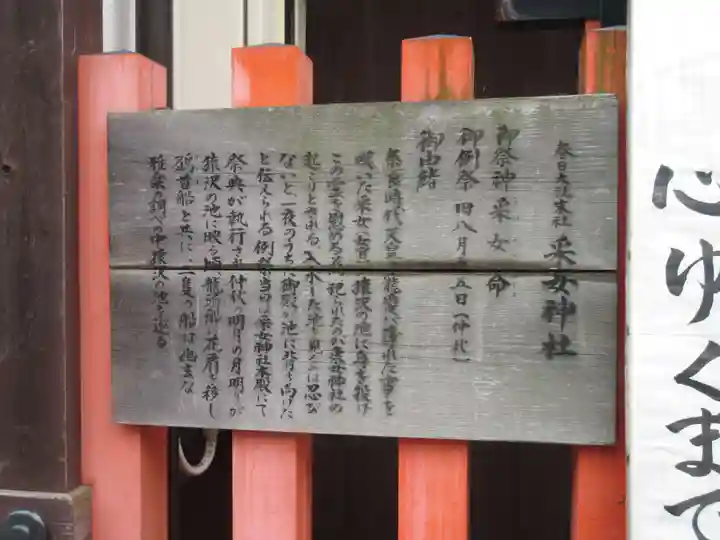 春日大社末社 采女神社
御祭神 采女命
御例祭 旧八月十五日(仲秋)
御由緒
奈良時代、天皇の寵愛が薄れた事を
嘆いた采女(女官)が猿沢の池に身を投げ
この霊を慰める為、祀られたのが采女神社の
起こりとされる。入水した池を見るのは忍び
ないと一夜のうちに御殿が池に背を向けた
と伝えられる。例祭当日は采女神社本殿にて
祭典が執行され、仲秋の名月の月明りが
猿沢の池に映る頃、龍頭船に花扇を移し
鷁首船と共に、二隻の船は幽玄な
雅楽の調べの中、猿沢の池を巡る
心ゆくまで